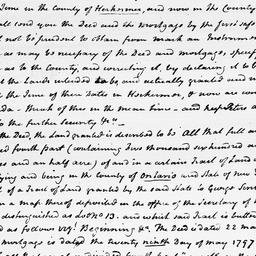 time in the County of Herkemer, and now in the County
will send you the Deed and the Mortgage by the first safe
not be prudent to obtain from Mark an Instrument
as may be necessary of the Deed and mortgage, specif
as to the County, and correcting it, by declaring it to b
the Lands intended to be, and actually granted and m
the time of their dates in Herkemer, & now are con
da - Much of this in the mean time - and
to the further security &c -
the Deed, the Land granted is described to be All that full an
fourth part (containing two thousand six hundred an
es and an half acre) of and in a certain Tract of Land
lying and being in the County of Ontario and State of New
of a Tract of Land granted by the said State to George
on a map thereof deposited in the office of the Secretary of
distinguished as Lot No 13. and which said Tract is butted
as follows viz! Beginning &c. The Deed is dated 22 Ma
mortgage is dated the twenty ninth Day of may 1797